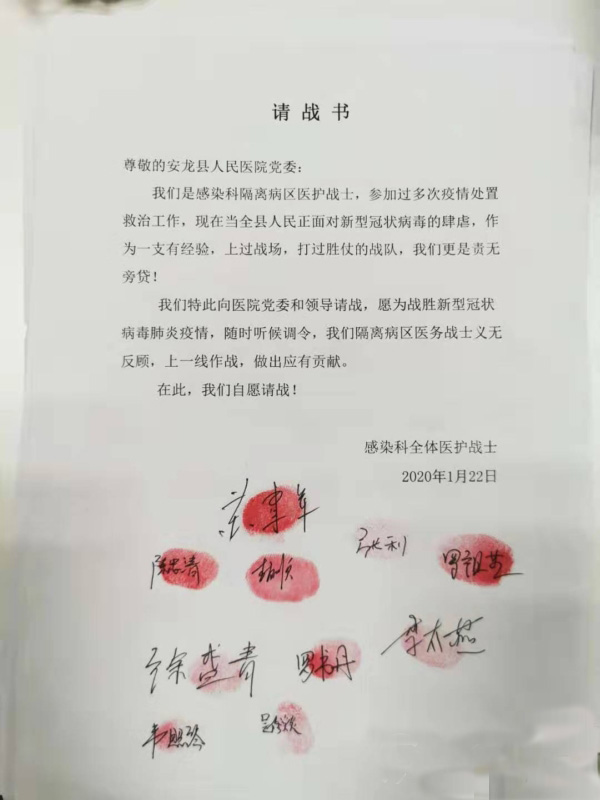 请战书
尊敬的安龙县人民医院党委：
我们是感染科隔离病区医护战士，参加过多次疫情处置
救治工作，现在当全县人民正面对新型冠状病毒的肆虐，作
为一支有经验，上过战场，打过胜仗的战队，我们更是责无
旁贷！
我们特此向医院党委和领导请战，愿为战胜新型冠状
病毒肺炎疫情，随时听候调令，我们隔离病区医务战士义无
反顾，上一线作战，做出应有贡献。
在此，我们自愿请战！
感染科全体医护战士
2020年1月22日
陈忠清
罗祖芝
徐梦青
李太燕
韦照琴